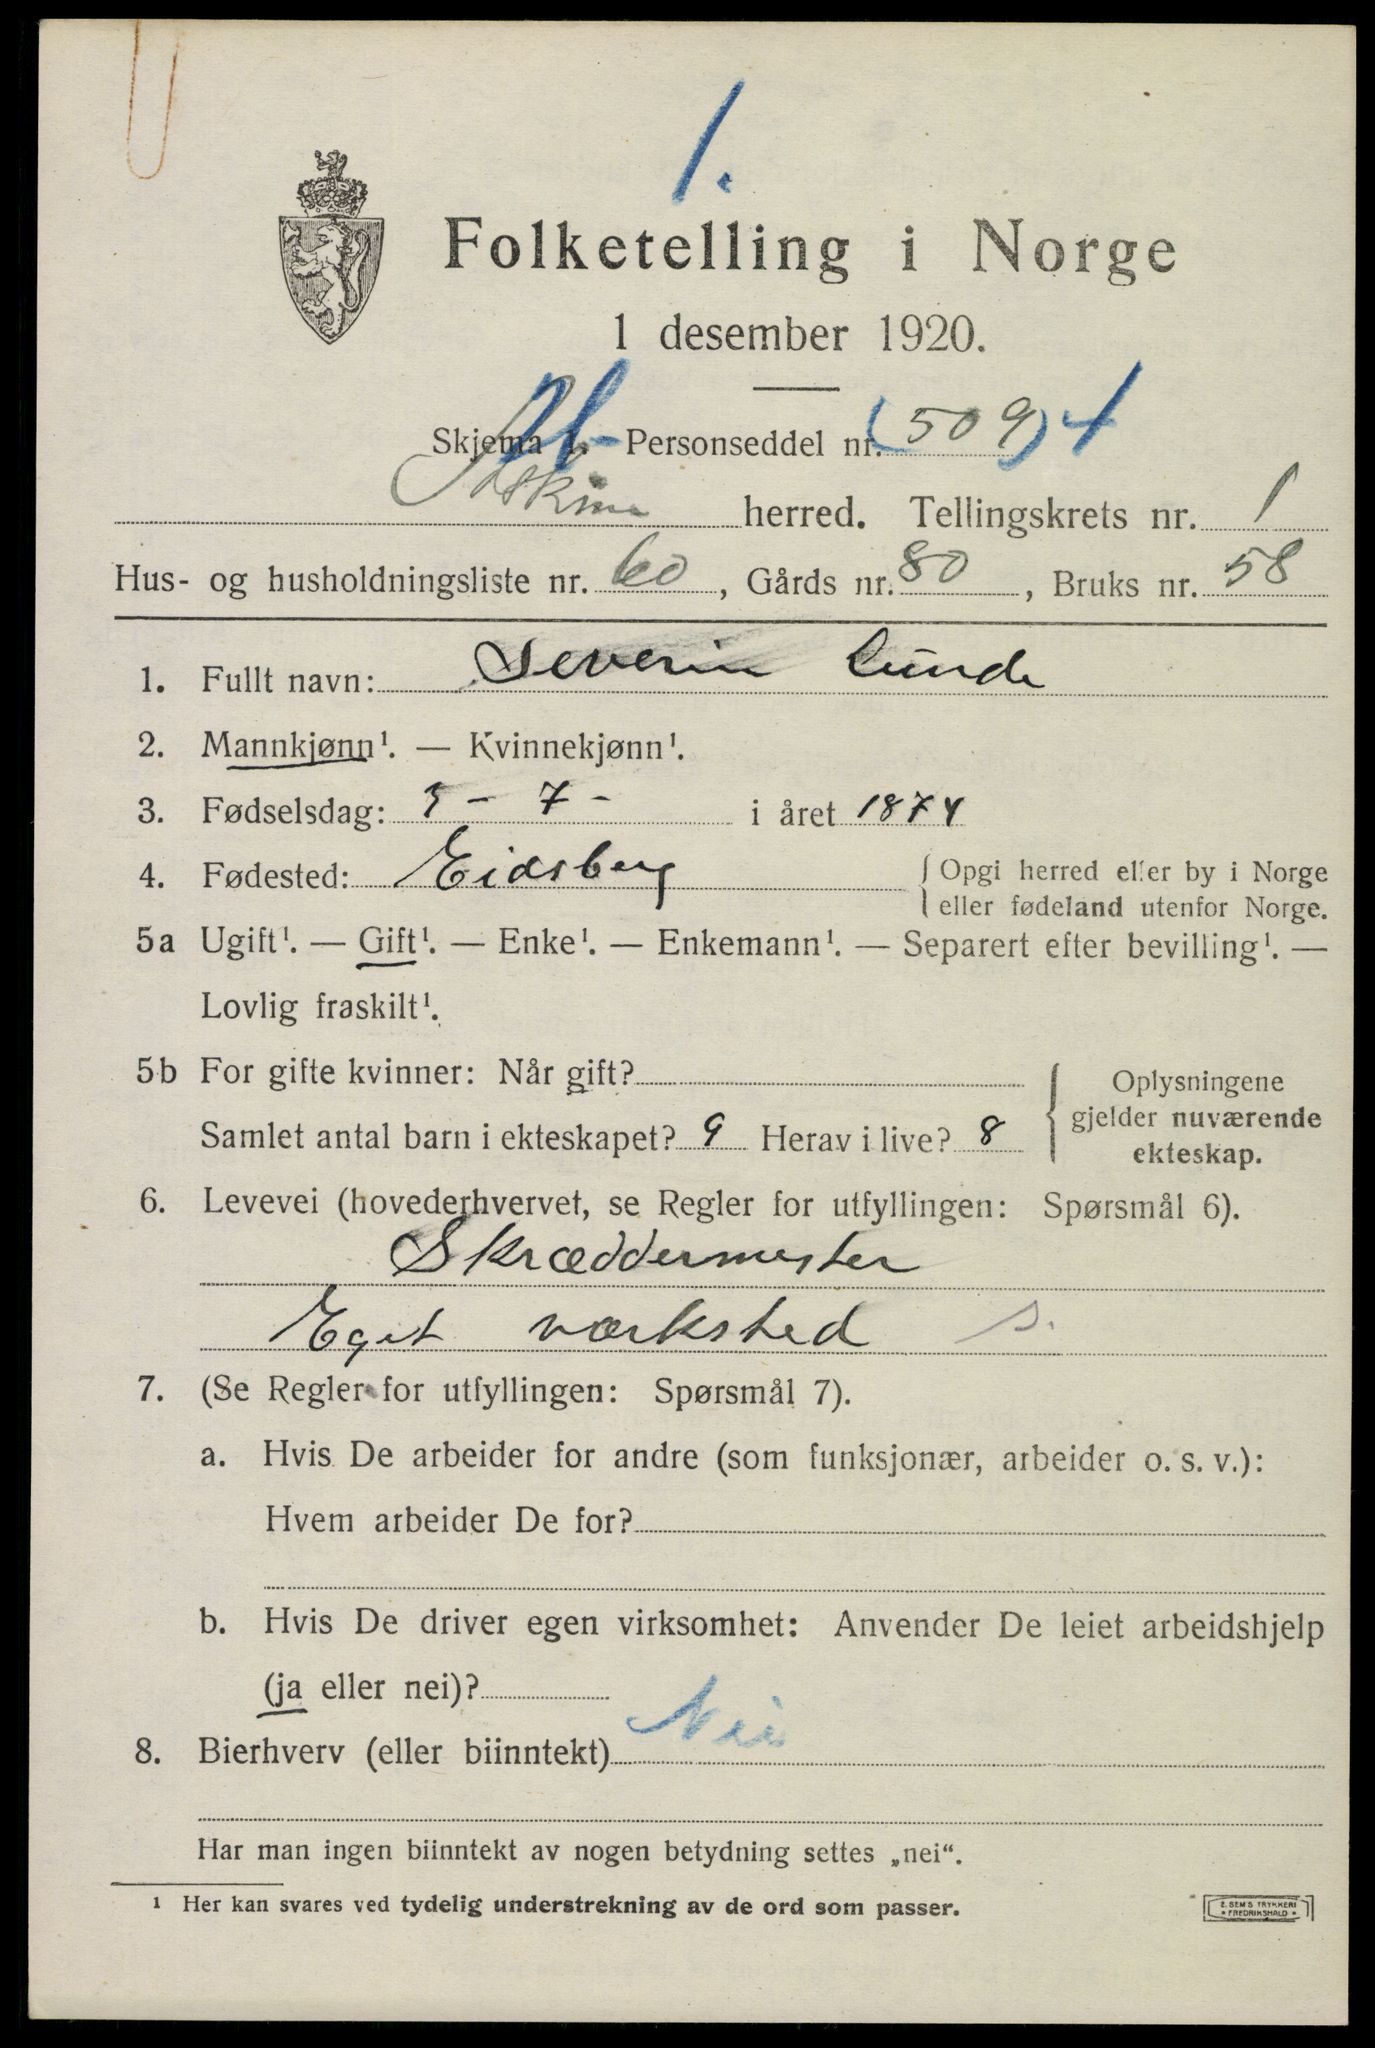 1.
Folketelling i Norge
1 desember 1920.
Skjema 1. Personseddel nr. (509) 4
Askim herred. Tellingskrets nr. 1
Hus- og husholdningsliste nr. 60, Gårds nr. 80, Bruks nr. 58
1. Fullt navn: Severin Lunde
2. Mannkjønn¹. — Kvinnekjønn¹.
3. Fødselsdag: 5 - 7 - i året 1874
4. Fødested: Eidsberg { Opgi herred eller by i Norge
eller fødeland utenfor Norge.
5a Ugift¹. — Gift¹. — Enke¹. — Enkemann¹. — Separert efter bevilling¹. —
Lovlig fraskilt¹.
5b For gifte kvinner: Når gift?
Samlet antal barn i ekteskapet? 9 Herav i live? 8
{ Oplysningene
gjelder nuværende
ekteskap.
6. Levevei (hovederhvervet, se Regler for utfyllingen: Spørsmål 6).
Skræddermester
Eget værksted s.
7. (Se Regler for utfyllingen: Spørsmål 7).
a. Hvis De arbeider for andre (som funksjonær, arbeider o. s. v.):
Hvem arbeider De for?
b. Hvis De driver egen virksomhet: Anvender De leiet arbeidshjelp
(ja eller nei)?
8. Bierhverv (eller biinntekt) Nei
Har man ingen biinntekt av nogen betydning settes „nei“.
¹ Her kan svares ved tydelig understrekning av de ord som passer.
E. SEM'S TRYKKERI
• FREDRIKSHALD •